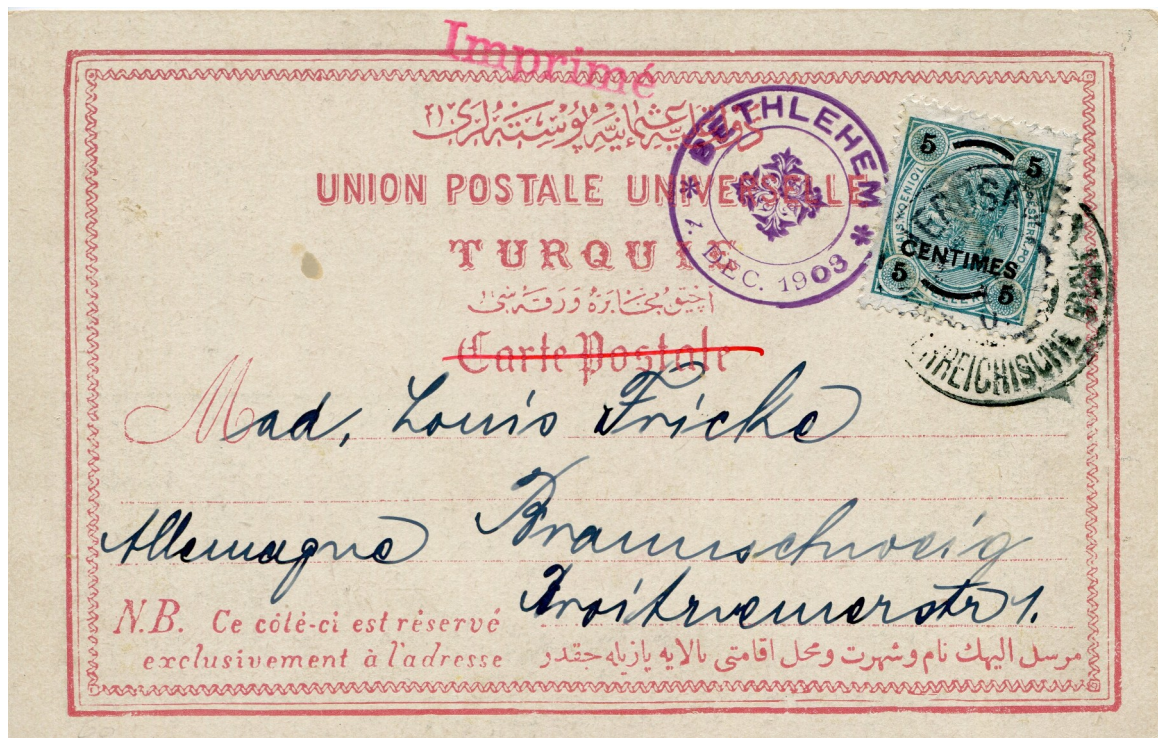 Imprimé
دولت عليه عثمانيه پوسته لرى
UNION POSTALE UNIVERSELLE
TURQUIE
آچيق مخابره ورقه سى
Carte Postale
* BETHLEHEM *
DEC. 1903
5 5
CENTIMES
5 5
JERUSA
RREICHISCHE
Mad. Louis Fricke
Braunschweig
Allemagne
N.B. Ce côté-ci est réservé
exclusivement à l'adresse
مرسل اليهك نام وشهرت ومحل اقامتى بالايه يازيله جقدر